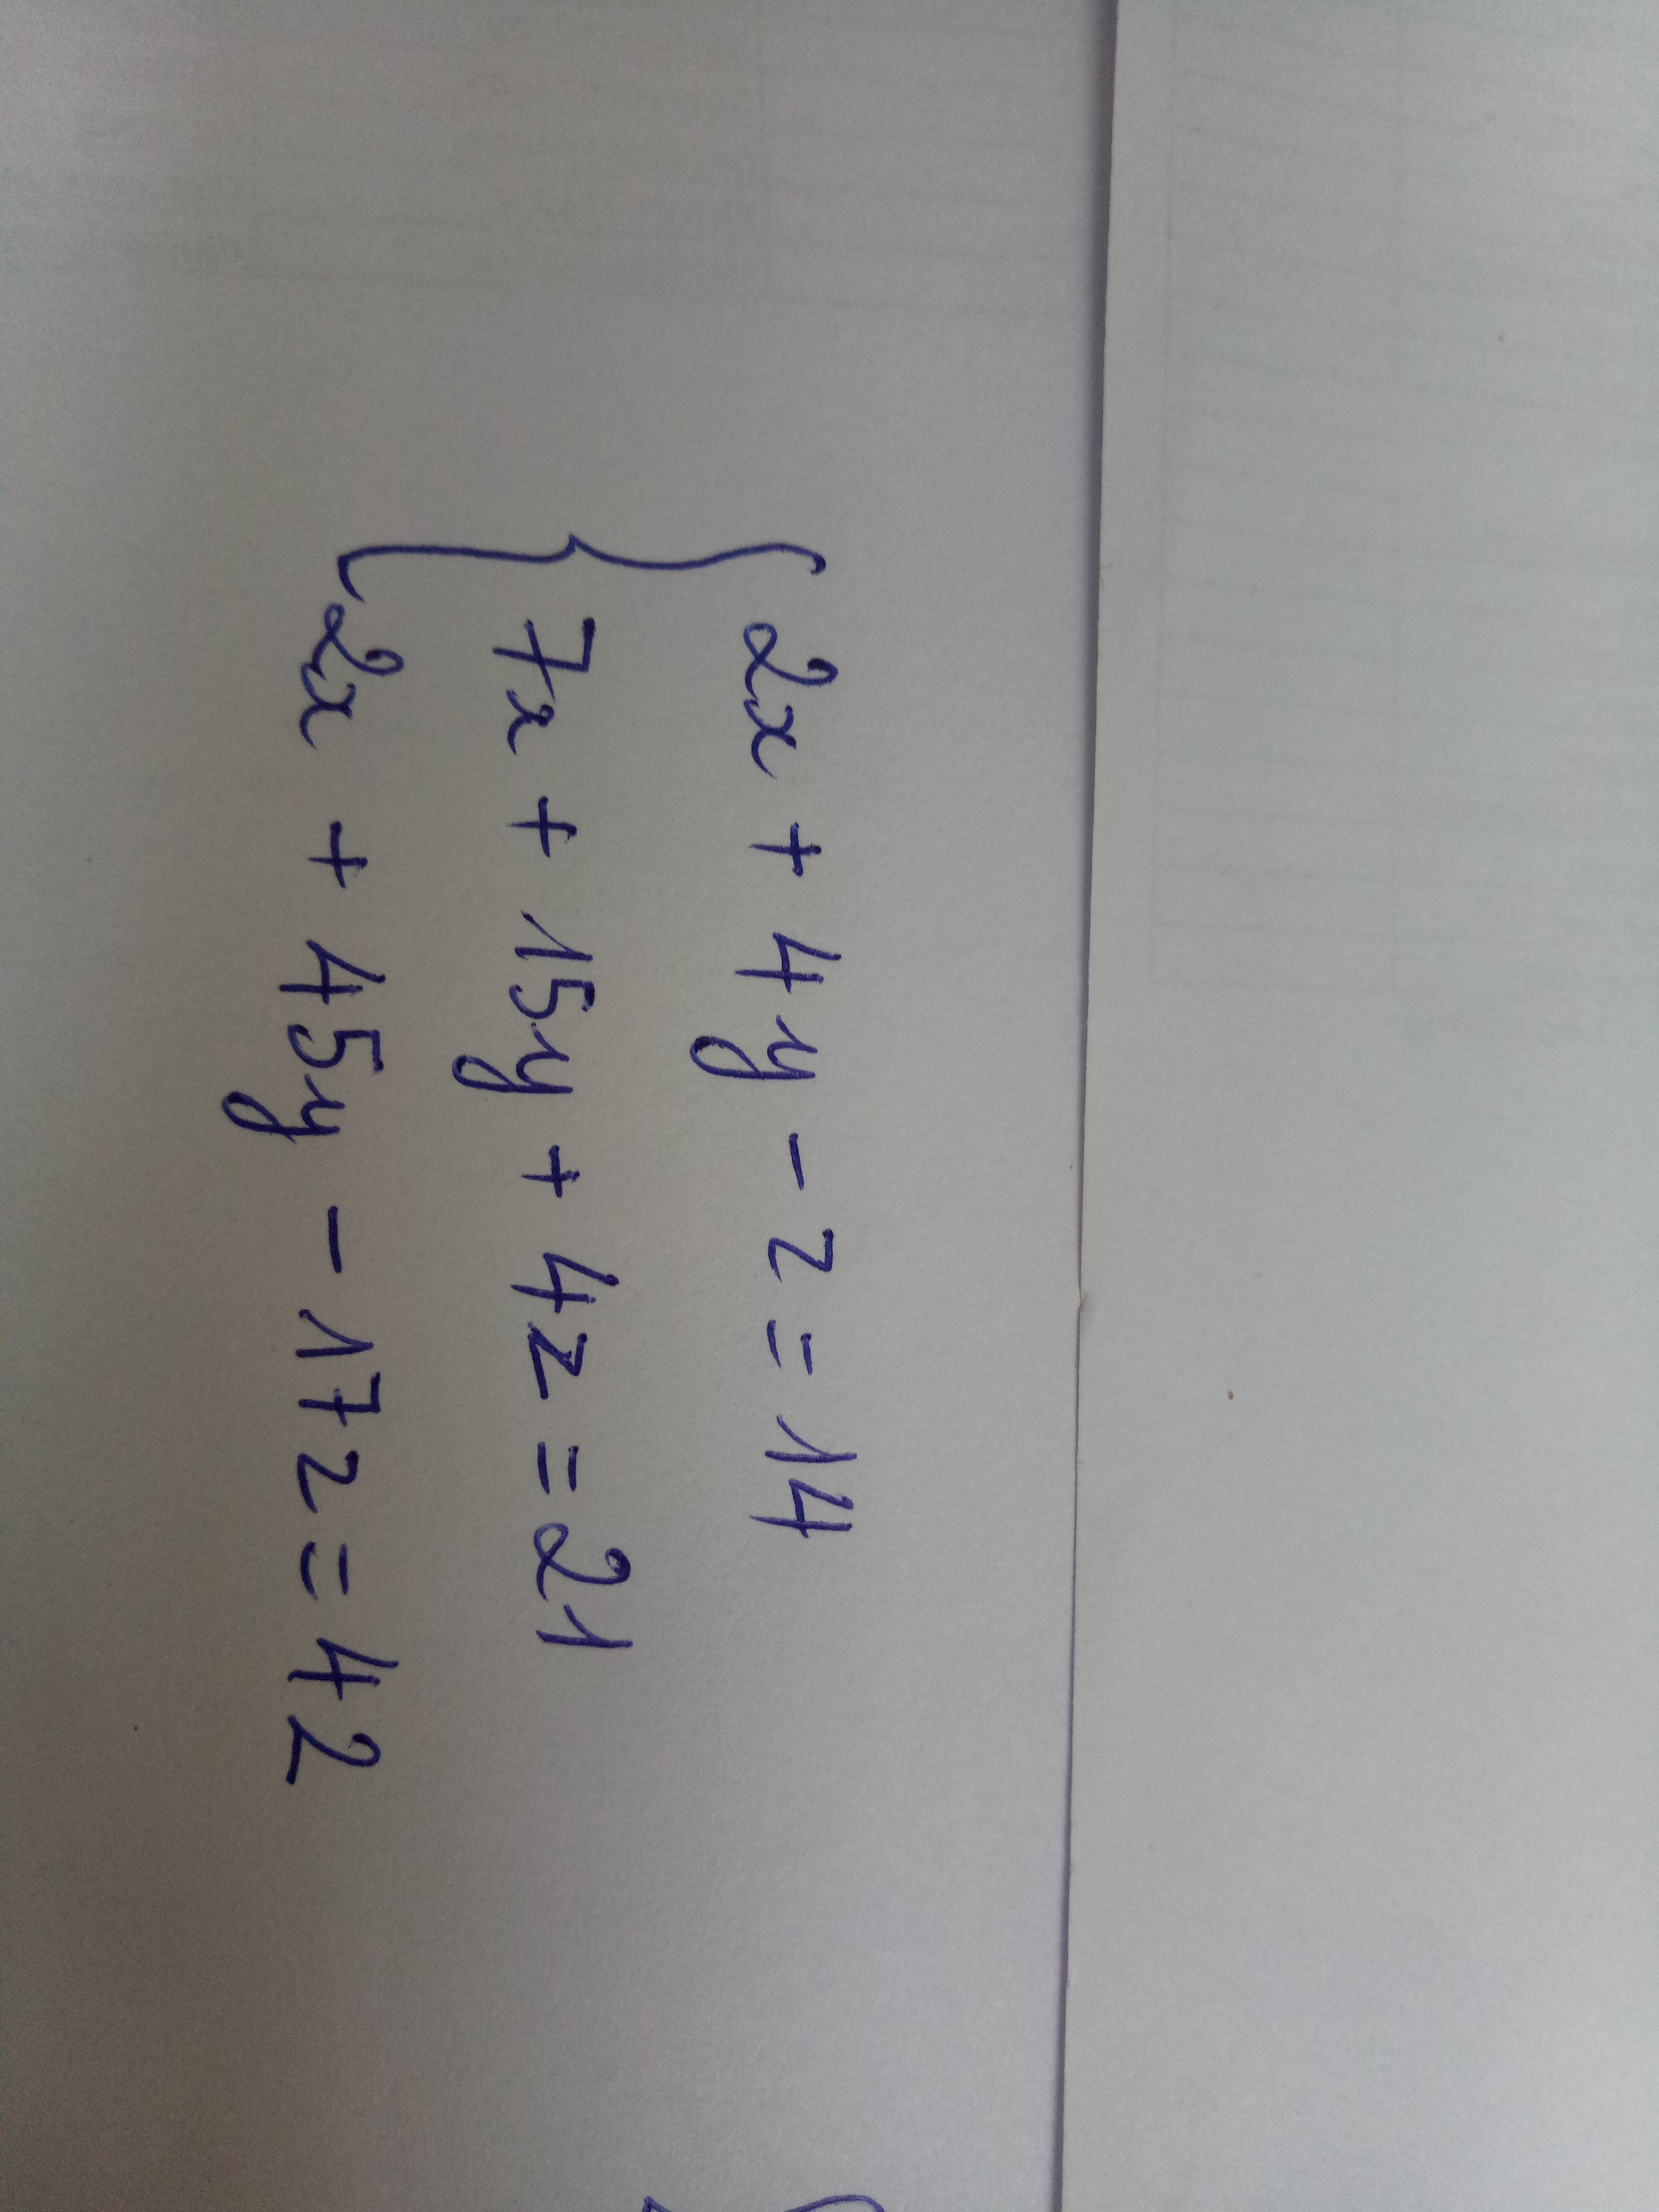 2x + 4y - z = 14
7x + 15y + 4z = 21
2x + 45y - 17z = 42